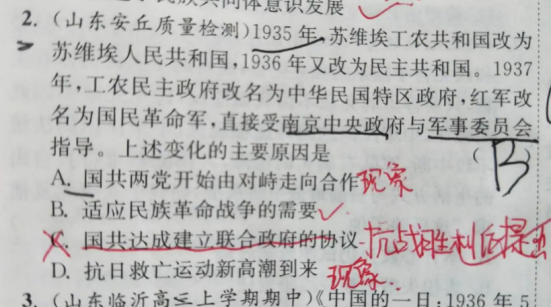 民族共同体意识发展
2. (山东安丘质量检测)1935年,苏维埃工农共和国改为
苏维埃人民共和国,1936年又改为民主共和国。1937
年,工农民主政府改名为中华民国特区政府,红军改
名为国民革命军,直接受南京中央政府与军事委员会
指导。上述变化的主要原因是 ( B
A. 国共两党开始由对峙走向合作 现象
B. 适应民族革命战争的需要 ✓
C. 国共达成建立联合政府的协议 抗战胜利后提出
D. 抗日救亡运动新高潮到来 现象
3. (山东临沂高三上学期期中)《中国的一日,1936年5